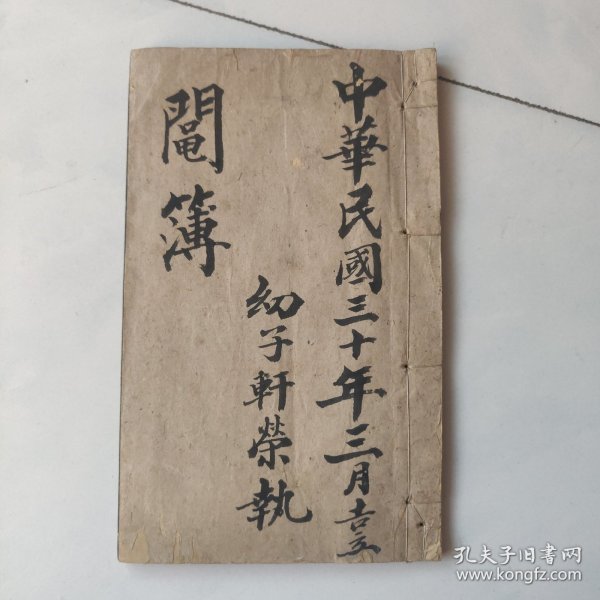 中華民國三十年三月吉立
幼子軒榮執
鬮簿
孔夫子旧书网
www.kongfz.com